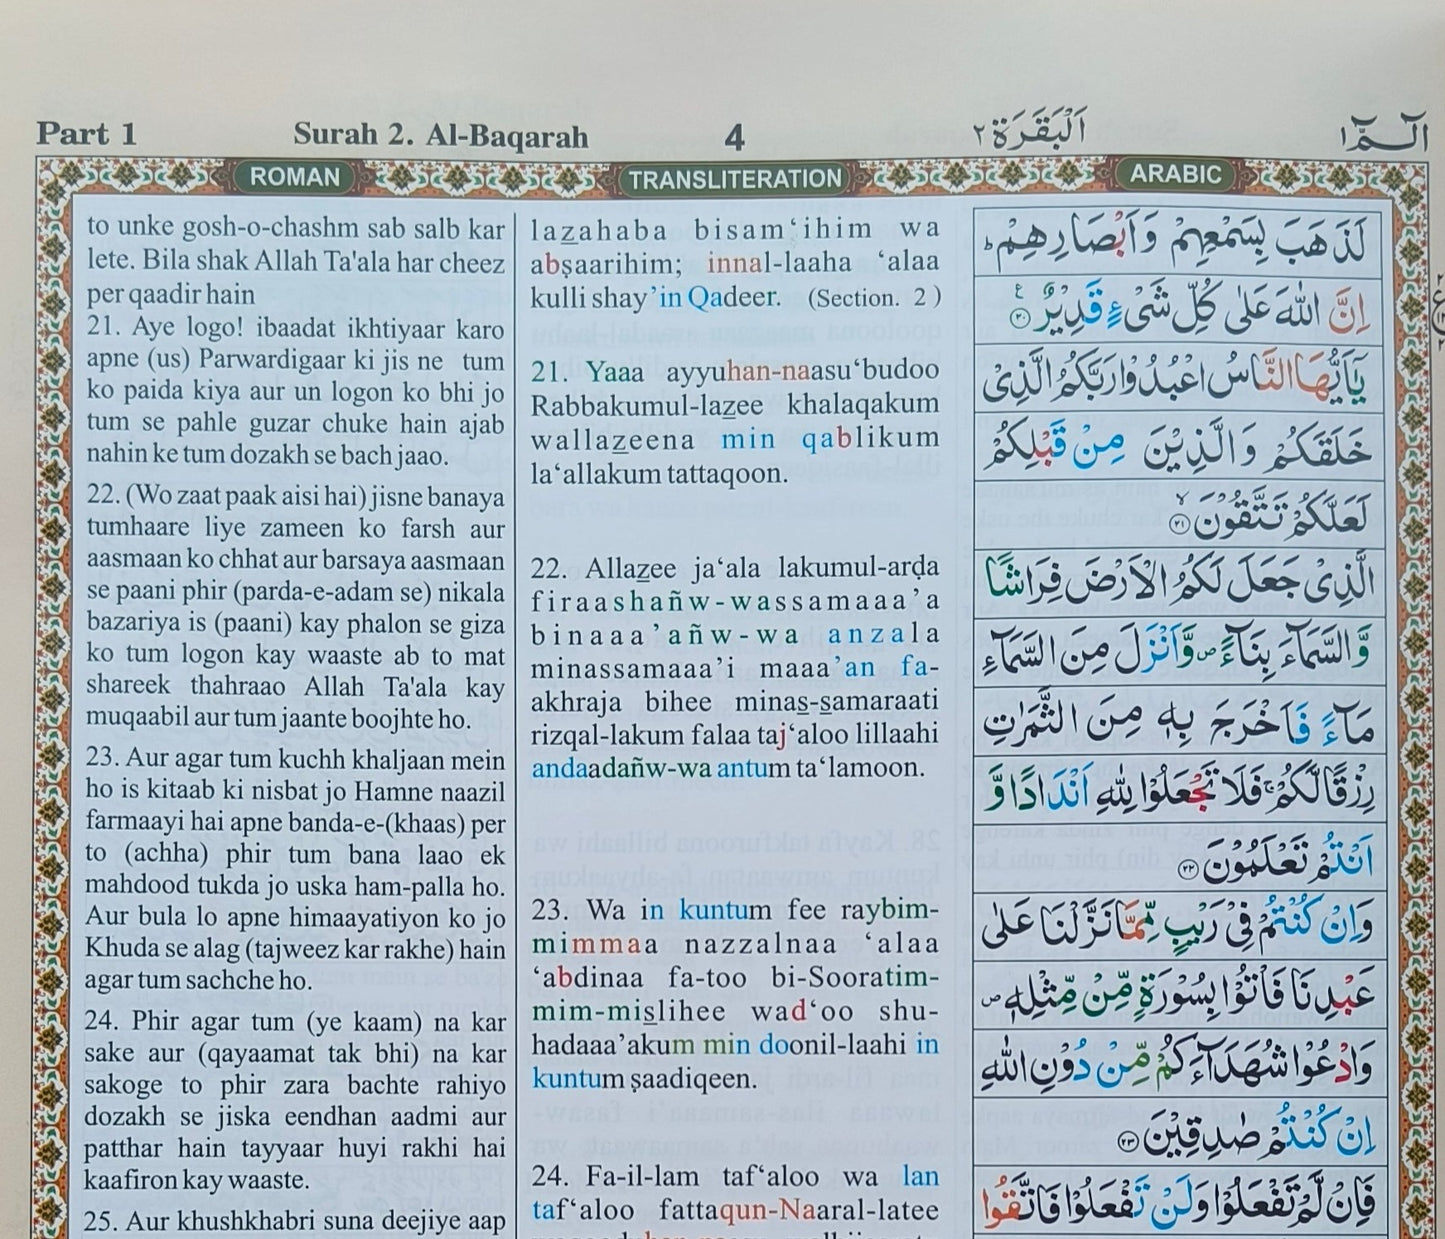 Part 1 Surah 2. Al-Baqarah 4 اَلْبَقَرَة ٢ الٓـمّٓ ١
ROMAN TRANSLITERATION ARABIC
to unke gosh-o-chashm sab salb kar
lete. Bila shak Allah Ta'ala har cheez
per qaadir hain
21. Aye logo! ibaadat ikhtiyaar karo
apne (us) Parwardigaar ki jis ne tum
ko paida kiya aur un logon ko bhi jo
tum se pahle guzar chuke hain ajab
nahin ke tum dozakh se bach jaao.
22. (Wo zaat paak aisi hai) jisne banaya
tumhaare liye zameen ko farsh aur
aasmaan ko chhat aur barsaya aasmaan
se paani phir (parda-e-adam se) nikala
bazariya is (paani) kay phalon se giza
ko tum logon kay waaste ab to mat
shareek thahraao Allah Ta'ala kay
muqaabil aur tum jaante boojhte ho.
23. Aur agar tum kuchh khaljaan mein
ho is kitaab ki nisbat jo Hamne naazil
farmaayi hai apne banda-e-(khaas) per
to (achha) phir tum bana laao ek
mahdood tukda jo uska ham-palla ho.
Aur bula lo apne himaayatiyon ko jo
Khuda se alag (tajweez kar rakhe) hain
agar tum sachche ho.
24. Phir agar tum (ye kaam) na kar
sake aur (qayaamat tak bhi) na kar
sakoge to phir zara bachte rahiyo
dozakh se jiska eendhan aadmi aur
patthar hain tayyaar huyi rakhi hai
kaafiron kay waaste.
25. Aur khushkhabri suna deejiye aap
lazahaba bisam‘ihim wa
abṣaarihim; innal-laaha ‘alaa
kulli shay’in Qadeer. (Section. 2 )
21. Yaaa ayyuhan-naasu‘budoo
Rabbakumul-lazee khalaqakum
wallazeena min qablikum
la‘allakum tattaqoon.
22. Allazee ja‘ala lakumul-arḍa
firaashañw-wassamaaa’a
binaaa’añw-wa anzala
minassamaaa’i maaa’an fa-
akhraja bihee minas-samaraati
rizqal-lakum falaa taj‘aloo lillaahi
andaadañw-wa antum ta‘lamoon.
23. Wa in kuntum fee raybim-
mimmaa nazzalnaa ‘alaa
‘abdinaa fa-too bi-Sooratim-
mim-mislihee wad‘oo shu-
hadaaa’akum min doonil-laahi in
kuntum ṣaadiqeen.
24. Fa-il-lam taf‘aloo wa lan
taf‘aloo fattaqun-Naaral-latee
لَذَهَبَ بِسَمْعِهِمْ وَاَبْصَارِهِمْ ؕ
اِنَّ اللّٰهَ عَلٰى كُلِّ شَىْءٍ قَدِيْرٌ ﴿٢٠﴾
يٰٓاَيُّهَا النَّاسُ اعْبُدُوْا رَبَّكُمُ الَّذِىْ
خَلَقَكُمْ وَالَّذِيْنَ مِنْ قَبْلِكُمْ
لَعَلَّكُمْ تَتَّقُوْنَ ۙ ﴿٢١﴾
الَّذِىْ جَعَلَ لَكُمُ الْاَرْضَ فِرَاشًا
وَّالسَّمَآءَ بِنَآءً ۪ وَّاَنْزَلَ مِنَ السَّمَآءِ
مَآءً فَاَخْرَجَ بِهٖ مِنَ الثَّمَرٰتِ
رِزْقًا لَّكُمْ ۚ فَلَا تَجْعَلُوْا لِلّٰهِ اَنْدَادًا وَّ
اَنْتُمْ تَعْلَمُوْنَ ﴿٢٢﴾
وَاِنْ كُنْتُمْ فِىْ رَيْبٍ مِّمَّا نَزَّلْنَا عَلٰى
عَبْدِنَا فَاْتُوْا بِسُوْرَةٍ مِّنْ مِّثْلِهٖ ۪
وَادْعُوْا شُهَدَآءَكُمْ مِّنْ دُوْنِ اللّٰهِ
اِنْ كُنْتُمْ صٰدِقِيْنَ ﴿٢٣﴾
فَاِنْ لَّمْ تَفْعَلُوْا وَلَنْ تَفْعَلُوْا فَاتَّقُوا